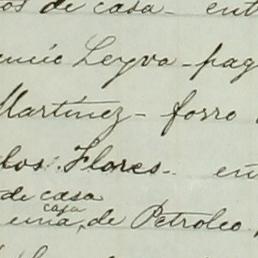 os de casa - ent
encio Leyva - pag
Martínez - forro
los Flores - en
de casa
casa
una, de Petroleo,